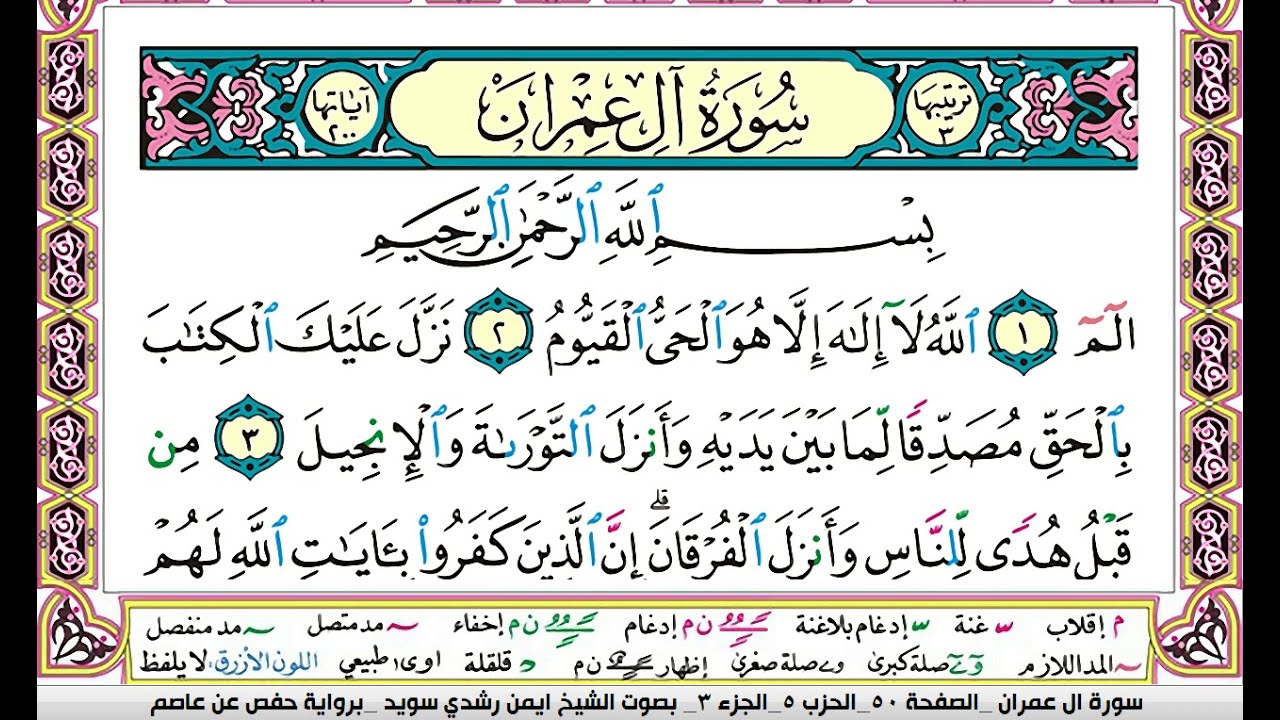 ترتيبها ٣ سُورَةُ آلِ عِمْرَانَ آياتها ٢٠٠
بِسْمِ ٱللَّهِ ٱلرَّحْمَٰنِ ٱلرَّحِيمِ
الٓمٓ ١ ٱللَّهُ لَآ إِلَٰهَ إِلَّا هُوَ ٱلْحَىُّ ٱلْقَيُّومُ ٢ نَزَّلَ عَلَيْكَ ٱلْكِتَٰبَ
بِٱلْحَقِّ مُصَدِّقًا لِّمَا بَيْنَ يَدَيْهِ وَأَنزَلَ ٱلتَّوْرَىٰةَ وَٱلْإِنجِيلَ ٣ مِن
قَبْلُ هُدًى لِّلنَّاسِ وَأَنزَلَ ٱلْفُرْقَانَ ۗ إِنَّ ٱلَّذِينَ كَفَرُوا۟ بِـَٔايَٰتِ ٱللَّهِ لَهُمْ
م إقلاب ـّ غنة ـّ إدغام بلاغنة ن م إدغام ن م إخفاء ~ مد متصل ~ مد منفصل
~ المد اللازم و ے صلة كبرى و ے صلة صغرى إظهار ن م د قلقلة اوى طبيعي اللون الأزرق لا يلفظ
سورة ال عمران _الصفحة ٥٠_الحزب ٥_الجزء ٣_ بصوت الشيخ ايمن رشدي سويد _برواية حفص عن عاصم